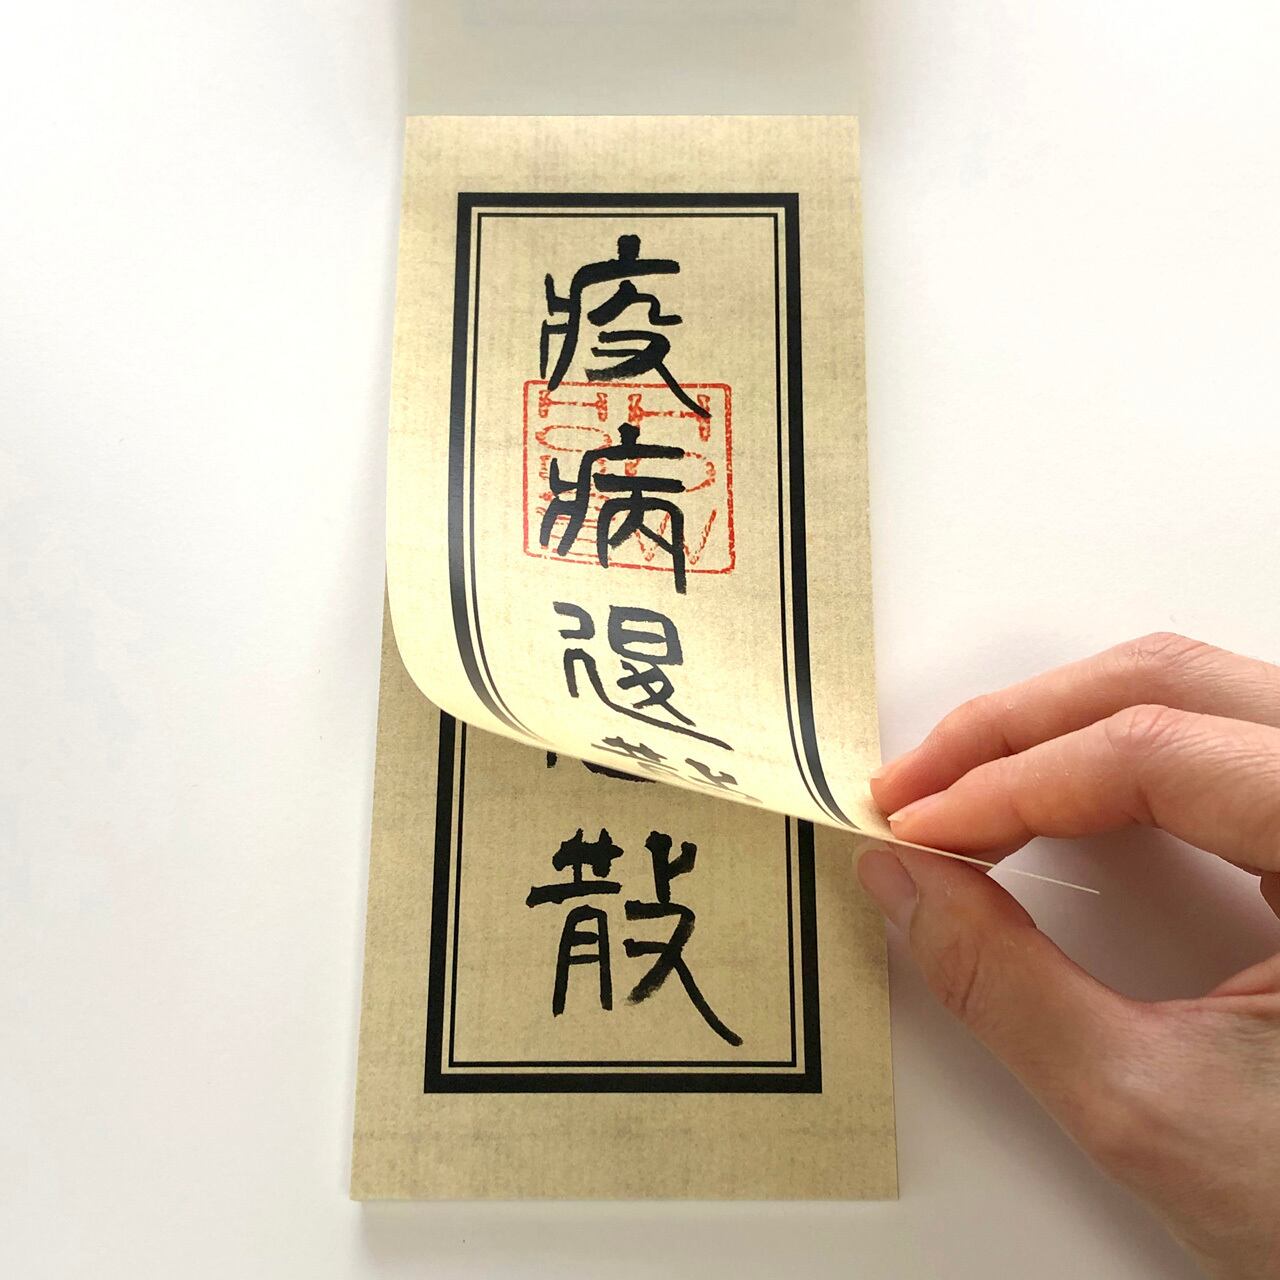 疫病退散